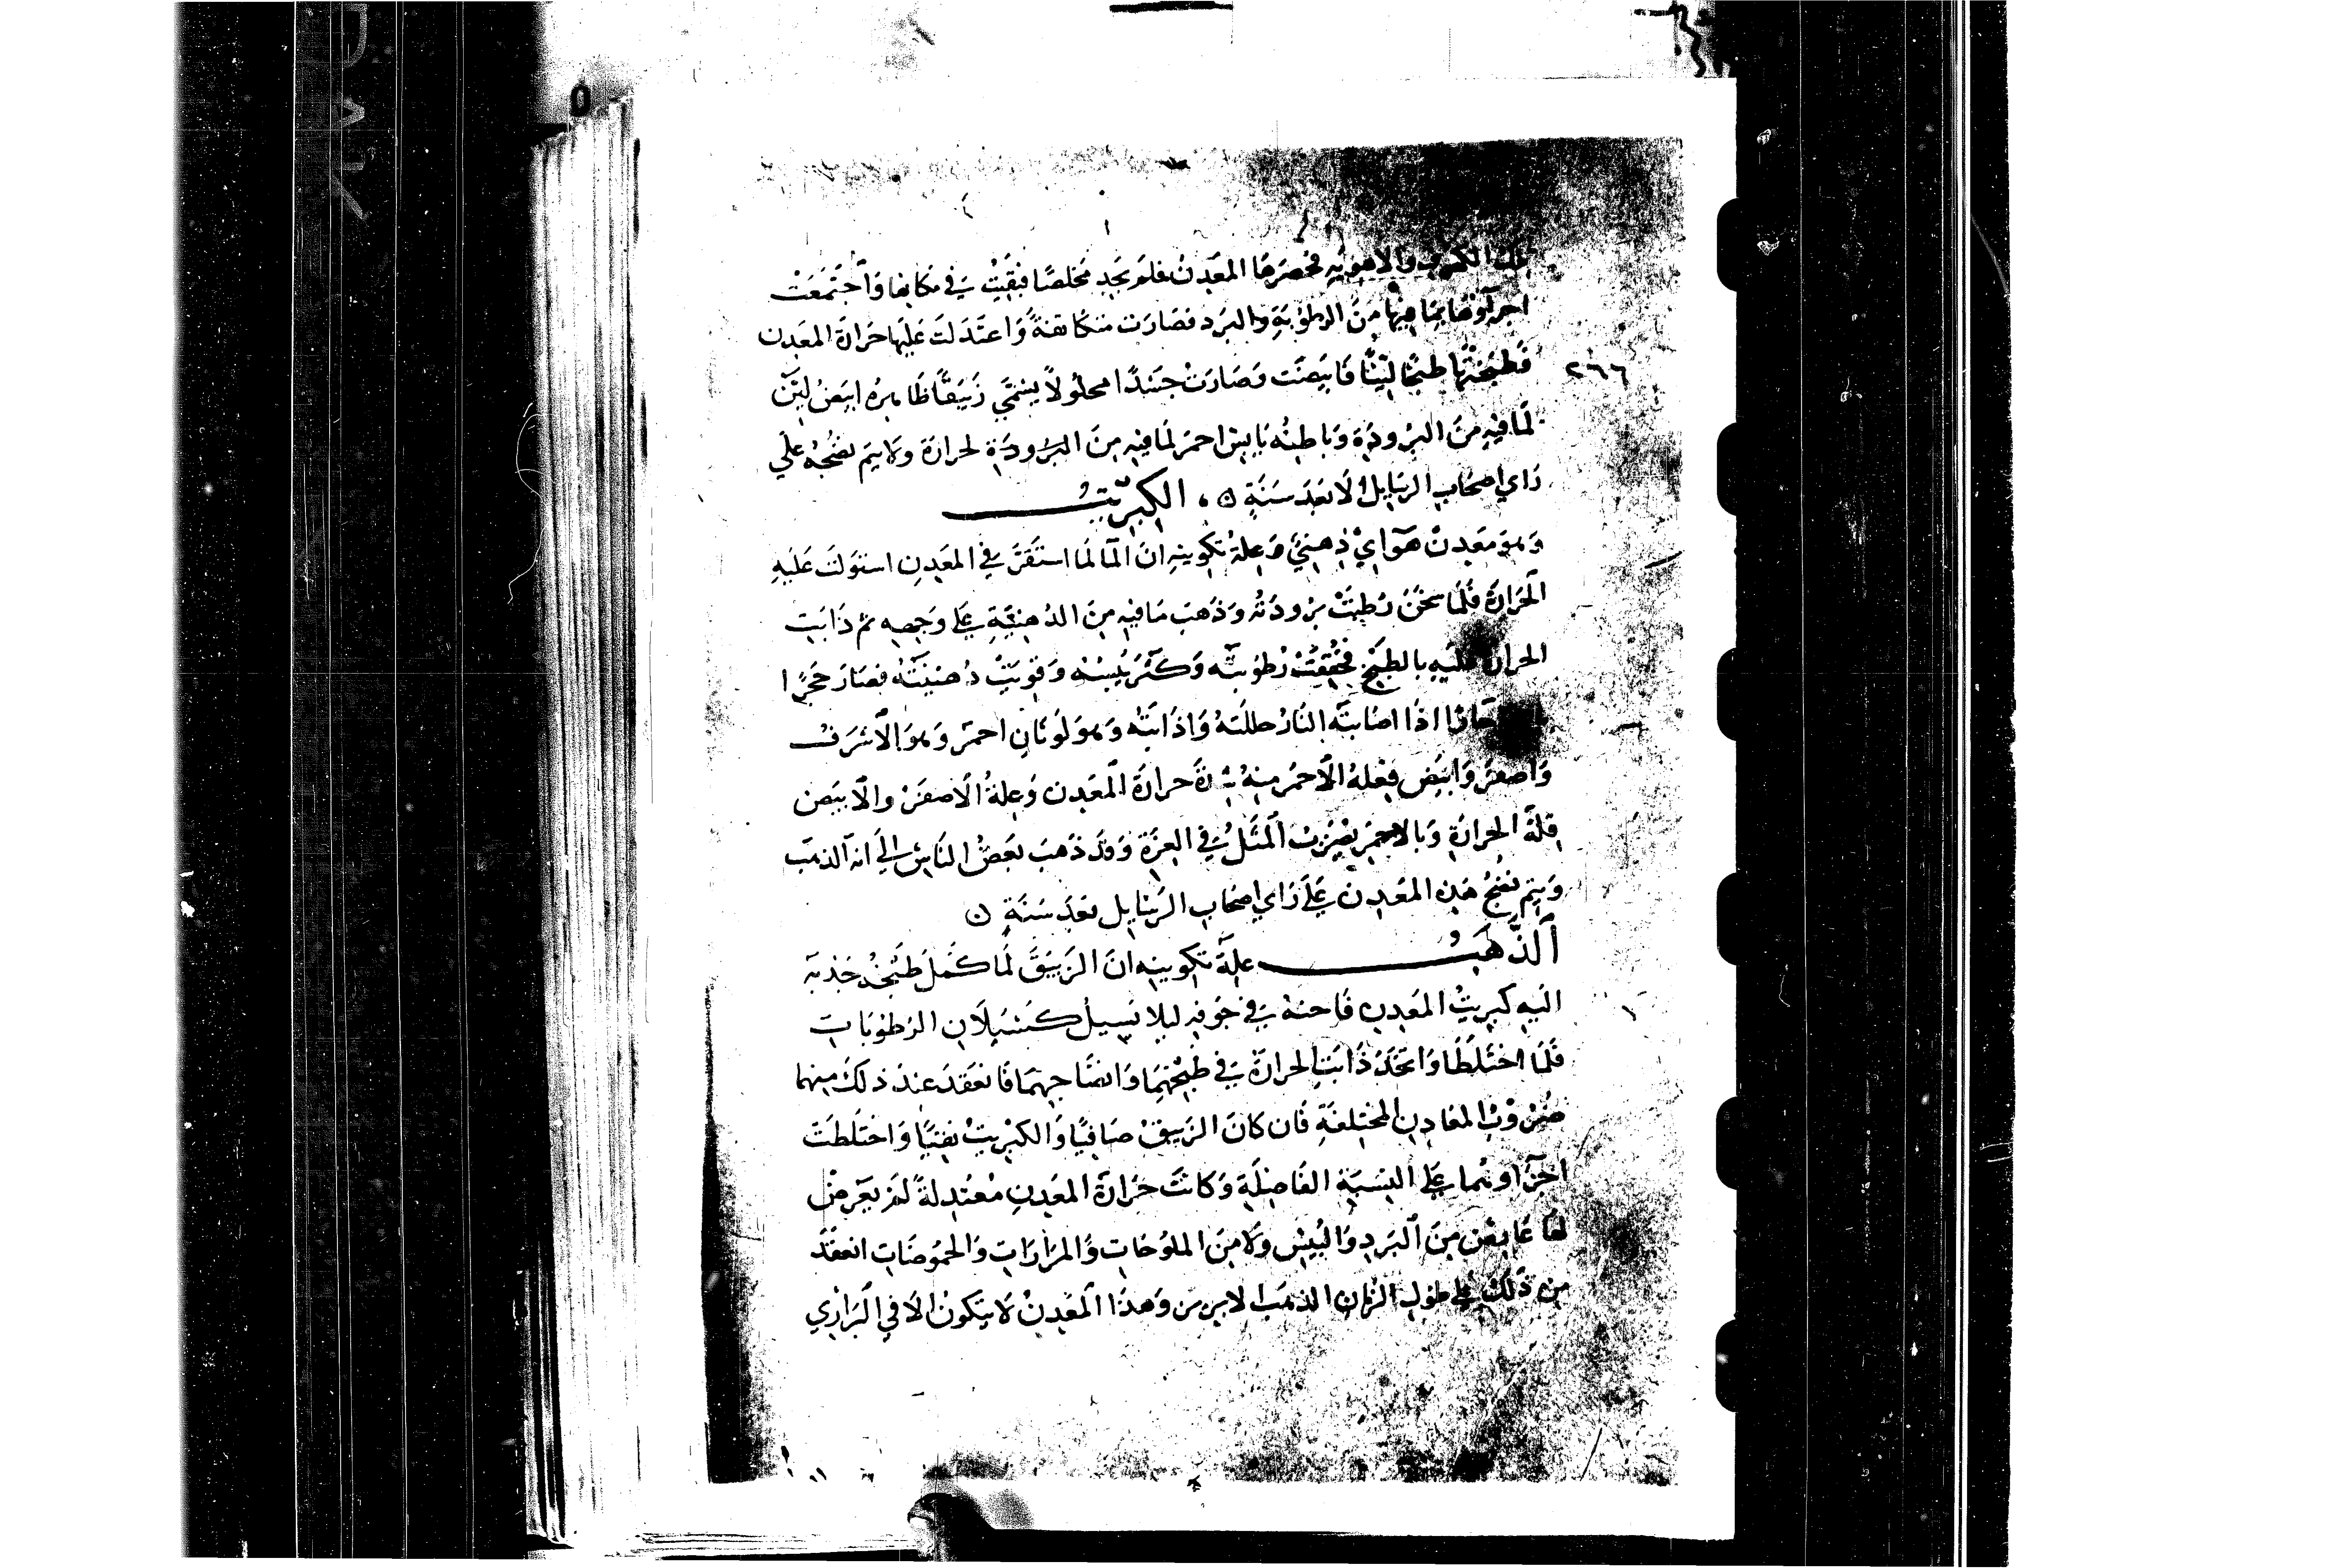 تلك الكهوف والاهوية فحصرها المعدن فلم تجد مخلصا فبقيت في مكانها واجتمعت
اجزاؤها بما فيها من الرطوبة والبرد فصارت متكاثفة واعتدلت عليها حرارة المعدن
٢٦٦
فطبختها طبخا لينا فابيضت وصارت جسدا محلولا يسمي زيبقا ظاهره ابيض لين
لما فيه من البرودة وباطنه يابس احمر لما فيه من البرودة لحرارة ولا يتم نضجه علي
راي اصحاب الرسايل الا بعد سنة ۞ الكبريت
وهو معدن هوآاي ذهني وعلة تكوينه ان المآ لما استقر في المعدن استولت عليه
الحرارة فلما سخن رطبت برودته وذهب ما فيه من الدهنية علي وجهه ثم دابت
الحرارة عليه بالطبخ فخفت رطوبته وكثر يبسه وقويت دهنيته فصار حجرا
حارا اذا اصابته النار حللته واذابته وهو لونان احمر وهو الاشرف
واصفر وابيض فعله الاحمر منه شدة حرارة المعدن وعلة الاصفر والابيض
قلة الحرارة وبالاحمر يضرب المثل في العزة وقد ذهب بعض الناس الي انه الذهب
ويتم نضج هذه المعدن علي راي اصحاب الرسايل بعد سنة ۞
الذهب علة تكوينه ان الزيبق لما كمل طبخه جذبه
اليه كبريت المعدن فاحنه في جوفه ليلا يسيل كسيلان الرطوبات
فلما اختلطا واتحدا دابت الحرارة في طبخهما وانضاجهما فانعقد عند ذلك منهما
ضروب المعادن المختلفة فان كان الزيبق صافيا والكبريت نقيا واختلطت
اجزاوهما علي النسبة الفاضلة وكانت حرارة المعدن معتدلة لم يعرض
لها عارض من البرد واليبس ولا من الملوحات والمرارات والحموضات انعقد
من ذلك علي طول الزمان الذهب الابريز وهذا المعدن لا يتكون الا في البراري